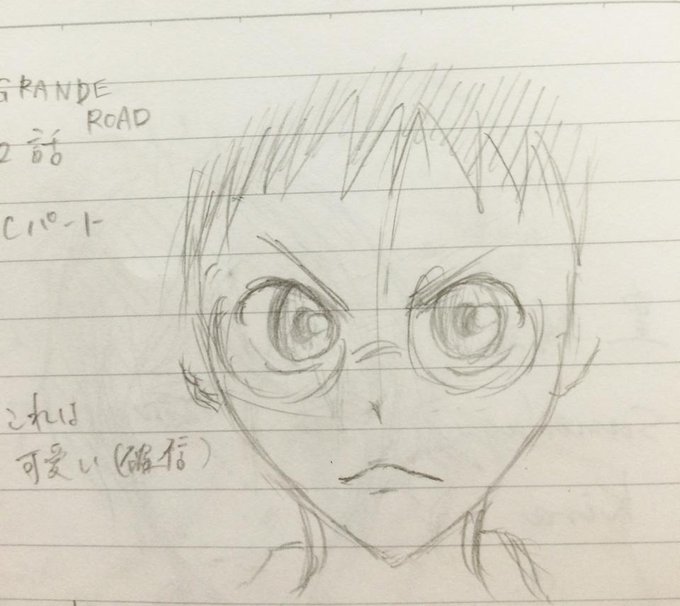 GRANDE
ROAD
2話
Cパート
これは
可愛い(確信)